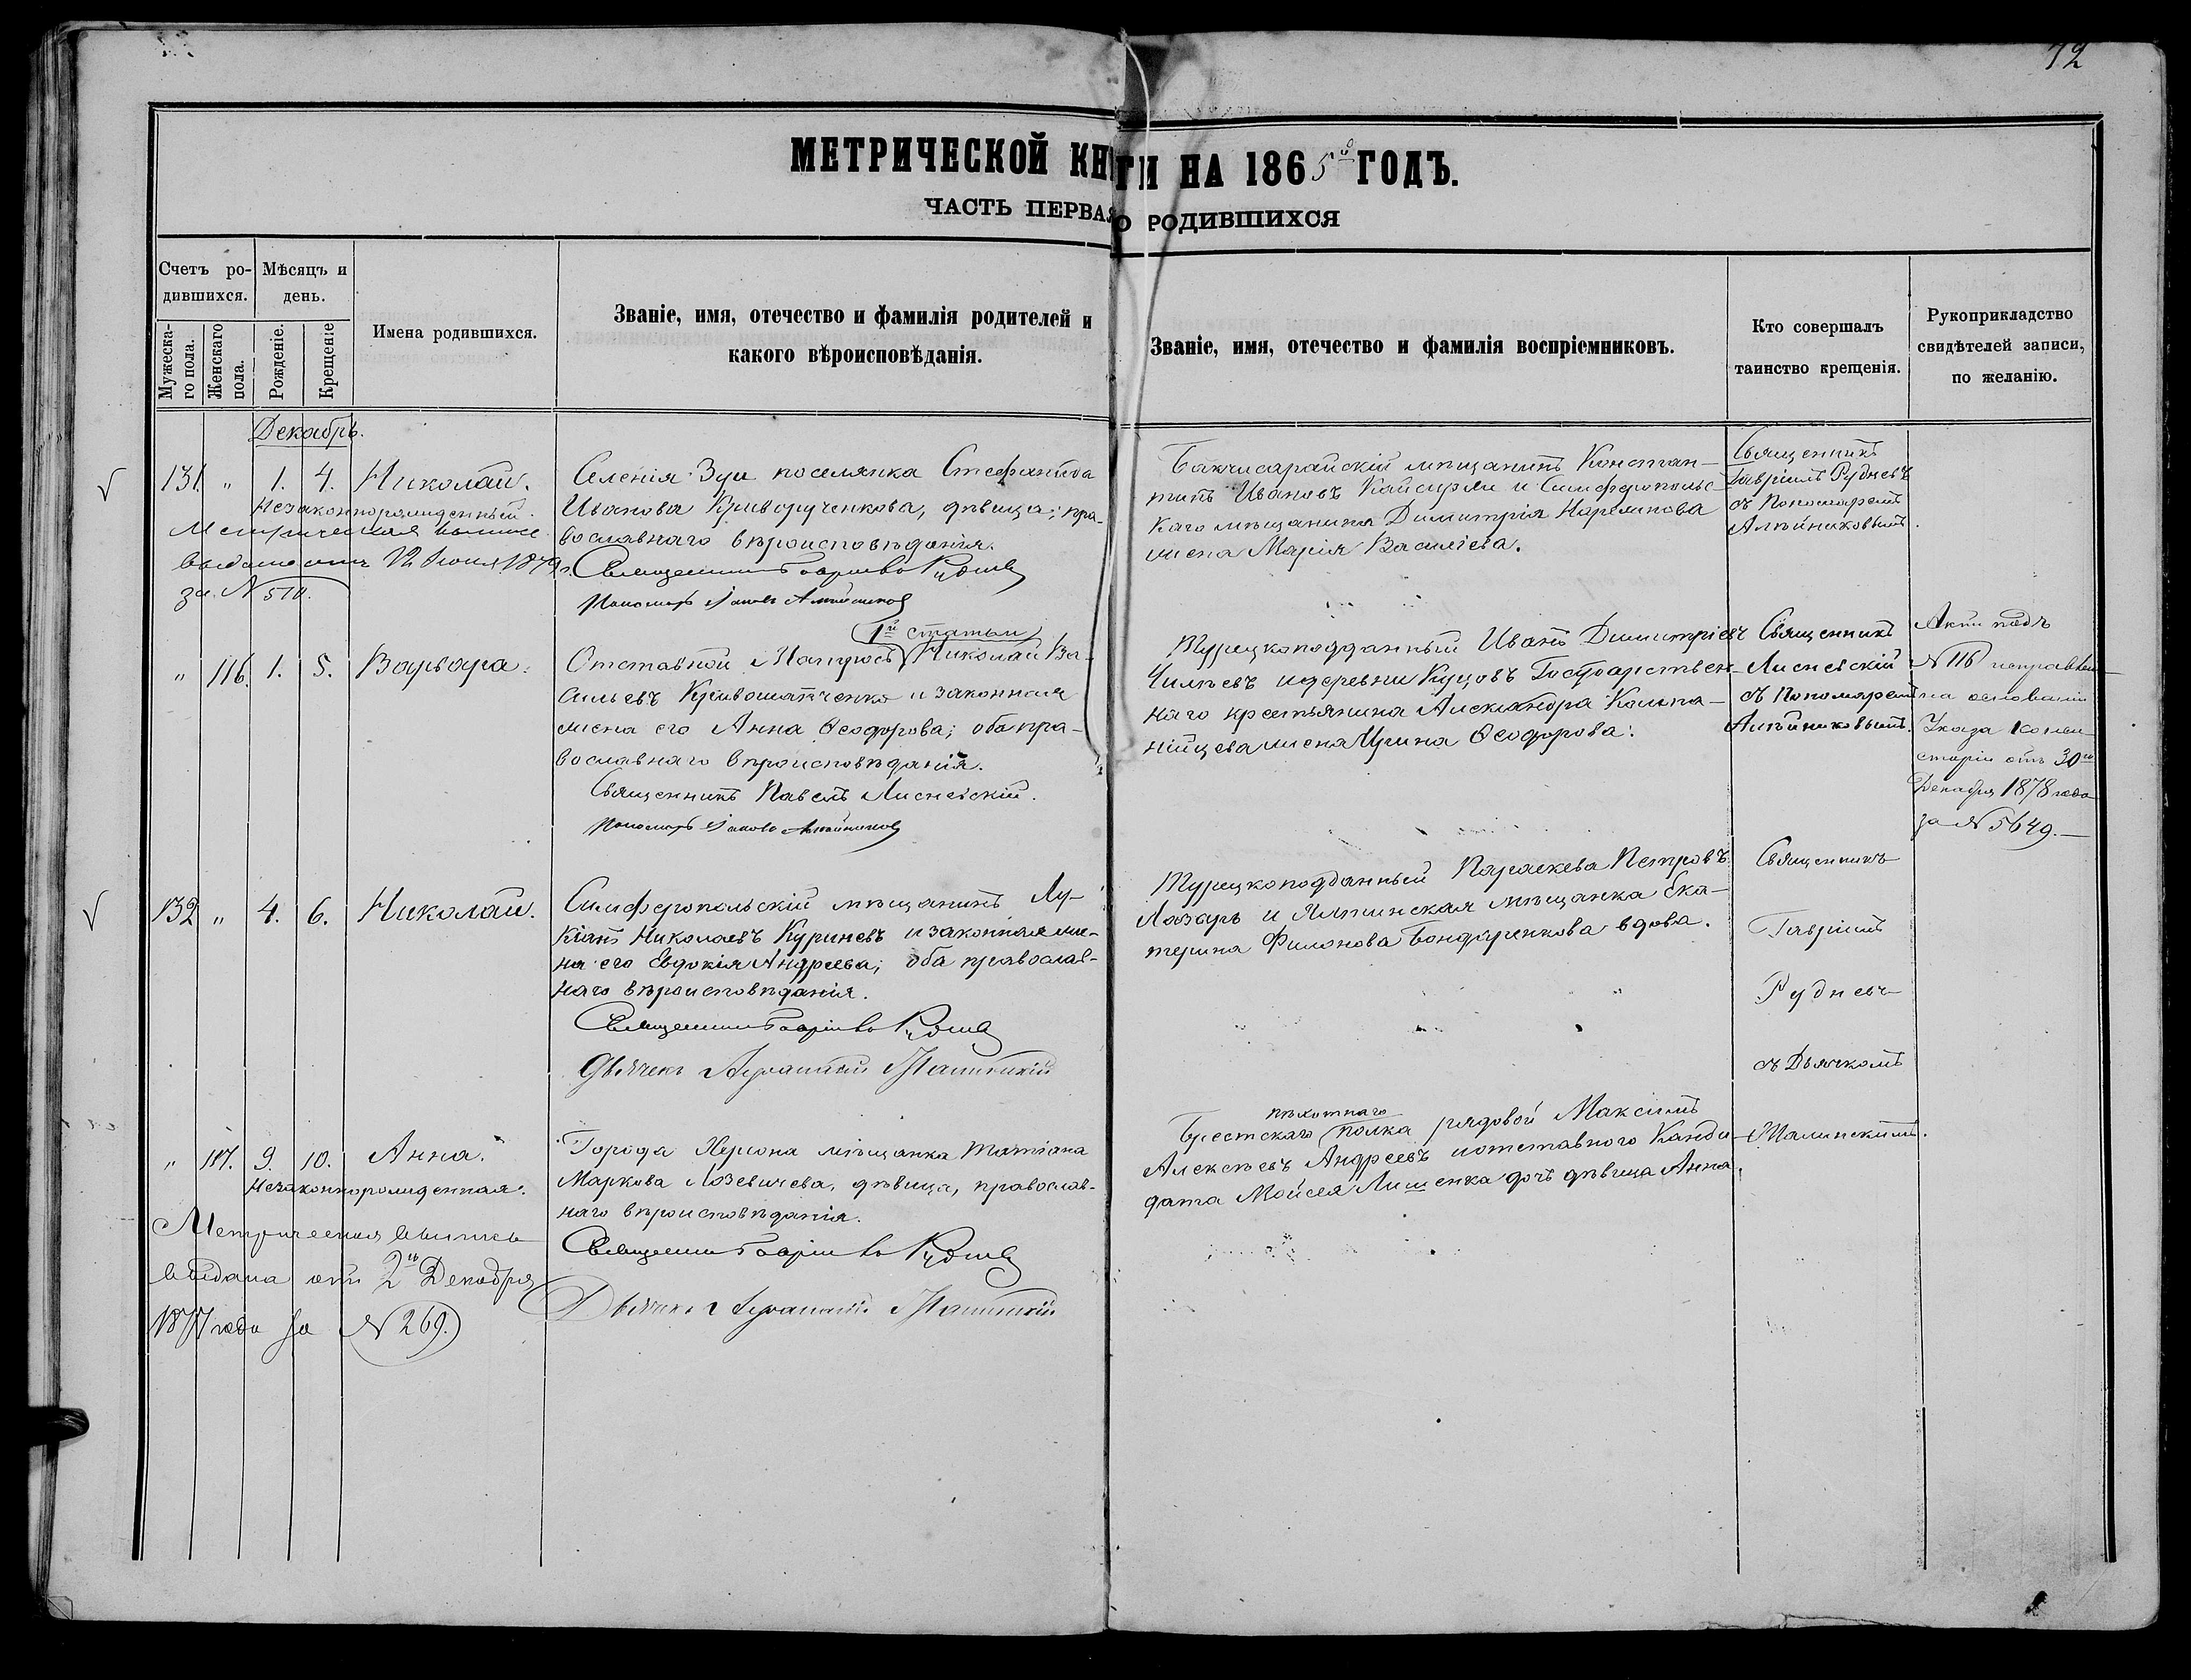 72
МЕТРИЧЕСКОЙ КНИГИ НА 1865й ГОДЪ.
ЧАСТЬ ПЕРВАЯ О РОДИВШИХСЯ
Счетъ ро-
дившихся.
Мужеска-
го пола.
Женскаго
пола.
Мѣсяцъ и
день.
Рожденіе.
Крещеніе
Имена родившихся.
Званіе, имя, отечество и фамилія родителей и
какого вѣроисповѣданія.
Званіе, имя, отечество и фамилія воспріемниковъ.
Кто совершалъ
таинство крещенія.
Рукоприкладство
свидѣтелей записи,
по желанію.
Декабрь.
131. " 1. 4. Николай.
Незаконнорожденный.
Метрическая
выдана отъ 12 Іюня 1879 г.
за N 510.
Селенія Зуи поселянка Стефанида
Иванова Криворученкова, дѣвица; пра-
вославнаго вѣроисповѣданія.
Священникъ Гавріилъ Рудневъ
Пономарь Іаковъ Алейниковъ
Бахчисарайскій мѣщанинъ Констан-
тинъ Ивановъ Кайсирли и Симферопольс-
каго мѣщанина Димитрія
жена Марія Василіева.
Священникъ
Гавріилъ Рудневъ
съ Пономаремъ
Алейниковымъ.
" 116. 1. 5. Варвара.
1й статьи
Отставной Матросъ Николай Ва-
сильевъ и законная
жена его Анна Ѳеодорова; оба пра-
вославнаго вѣроисповѣданія.
Священникъ Павелъ Лисневскій.
Пономарь Іаковъ Алейниковъ
Турецкоподданный Иванъ Димитріевъ
и деревни Государствен-
наго крестьянина Александра Кольпа-
нійцева жена Ирина Ѳеодорова.
Священникъ
Лисневскій
съ Пономаремъ
Алейниковымъ.
Актъ подъ
N 116 исправленъ
на основаніи
Указа Конси-
сторіи отъ 30го
Декабря 1878 года
за N 5649.—
132 " 4. 6. Николай.
Симферопольскій мѣщанинъ Лу-
кіанъ Николаевъ Куриневъ и законная же-
на его Евдокія Андреева; оба православ-
наго вѣроисповѣданія.
Священникъ Гавріилъ Рудневъ
Дьячекъ
Турецкоподданный Параскева Петровъ
Лазарь и Ялтинская мѣщанка Ека-
терина Филонова Бондаренкова вдова.
Священникъ
Гавріилъ
Рудневъ
съ Дьячкомъ
" 117. 9. 10. Анна.
Незаконнорожденная.
Метрическая выпись
выдана отъ 2го Декабря
1877 года за N 269.
Города Херсона мѣщанка Татіана
Маркова Лозевичева, дѣвица, православ-
наго вѣроисповѣданія.
Священникъ Гавріилъ Рудневъ
Дьячекъ
пѣхотнаго
Брестскаго полка рядовой Максимъ
Алексѣевъ Андреевъ и отставного Канди-
дата Мойсея Лишенка дочь дѣвица Анна.